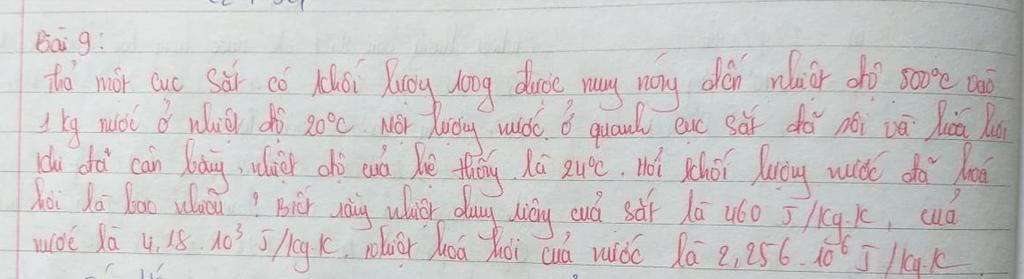 Bài 9:
thả một cục sắt có khối lượng 100g được nung nóng đến nhiệt độ 500°C vào
1 kg nước ở nhiệt độ 20°C. Một lượng nước ở quanh cục sắt đã sôi và hoá hơi
khi đã cân bằng, nhiệt độ của hệ thống là 24°C. Hỏi khối lượng nước đã hoá
hơi là bao nhiêu? Biết rằng nhiệt dung riêng của sắt là 460 J/kg.K, của
nước là 4,18.10³ J/kg.K. nhiệt hoá hơi của nước là 2,256.10⁶ J/kg.K